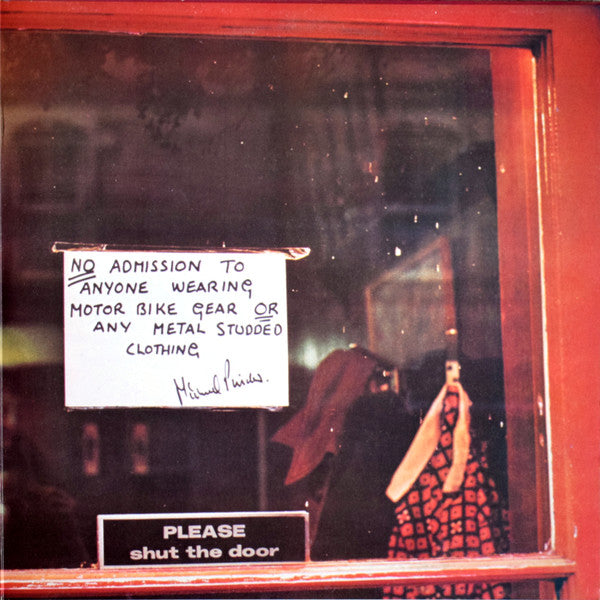 NO ADMISSION TO
ANYONE WEARING
MOTOR BIKE GEAR OR
ANY METAL STUDDED
CLOTHING
PLEASE
shut the door